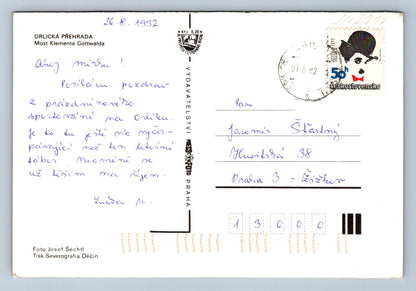 26-8-1992
ORLICKÁ PŘEHRADA
Most Klementa Gottwalda
Ahoj Mirku!
Posílám pozdrav
z prázdninového
sportování na Orlíku.
Je to tu ještě víc vyčer-
pávající než ten letošní
tábor. Nicméně se
už těším na říjen.
Lucka
Foto Josef Šechtl
Tisk Severografia Děčín
VYDAVATELSTVÍ
PRAHA
50h
Československo
Pan
Jaromír Šťastný
Husitská 38
Praha 3 - Žižkov
13000